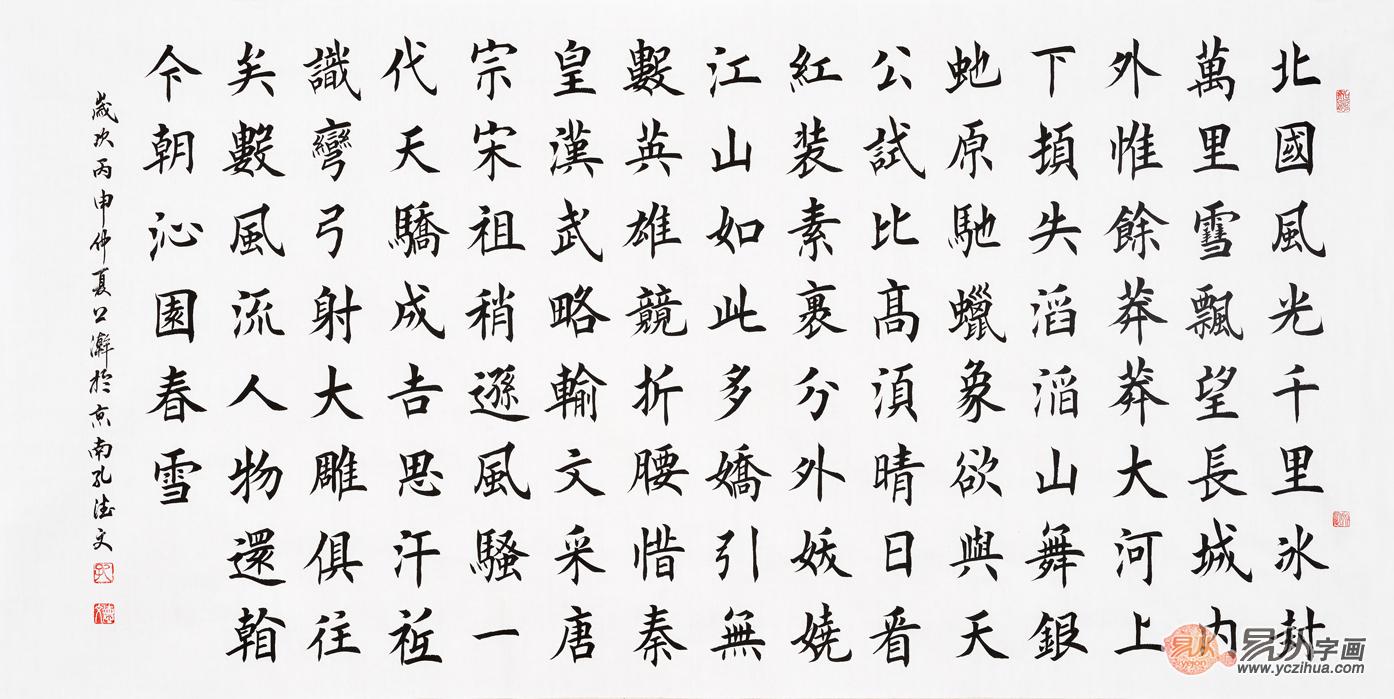 北國風光千里冰封
萬里雪飄望長城内
外惟餘莽莽大河上
下頓失滔滔山舞銀
虵原馳蠟象欲與天
公試比髙須晴日看
紅装素裹分外妖嬈
江山如此多嬌引無
數英雄競折腰惜秦
皇漢武略輸文采唐
宗宋祖稍遜風騷一
代天驕成吉思汗祗
識彎弓射大雕俱往
矣數風流人物還
今朝沁園春雪
歲次丙申仲夏澣於京南孔德文
易从字画
www.yczihua.com